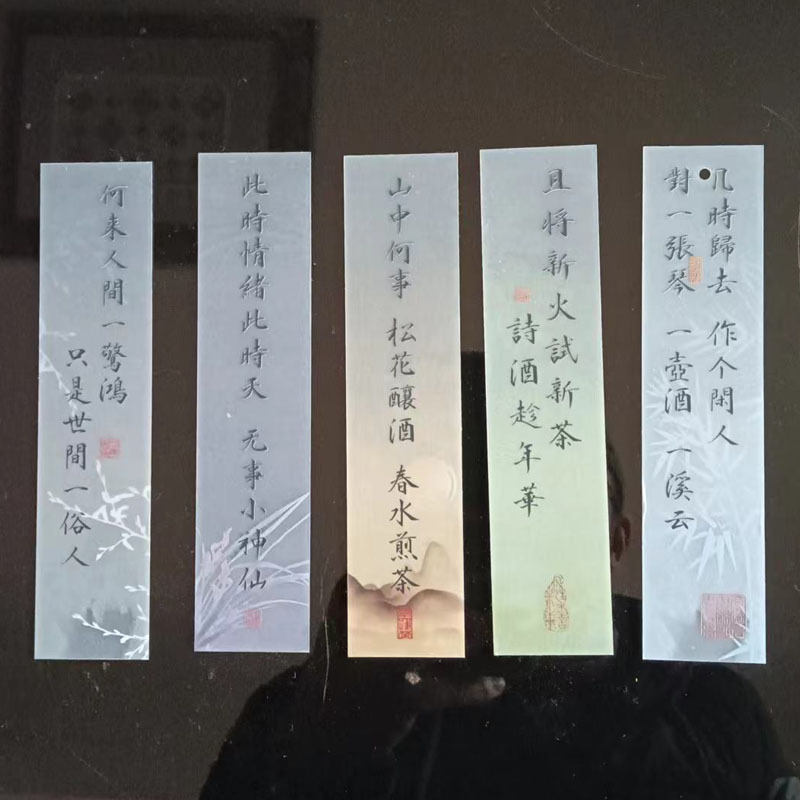 何来人間一驚鴻
只是世間一俗人
此時情緒此時天 无事小神仙
山中何事 松花釀酒 春水煎茶
且将新火試新茶
詩酒趁年華
几時歸去 作个閑人
對一張琴 一壺酒 一溪云